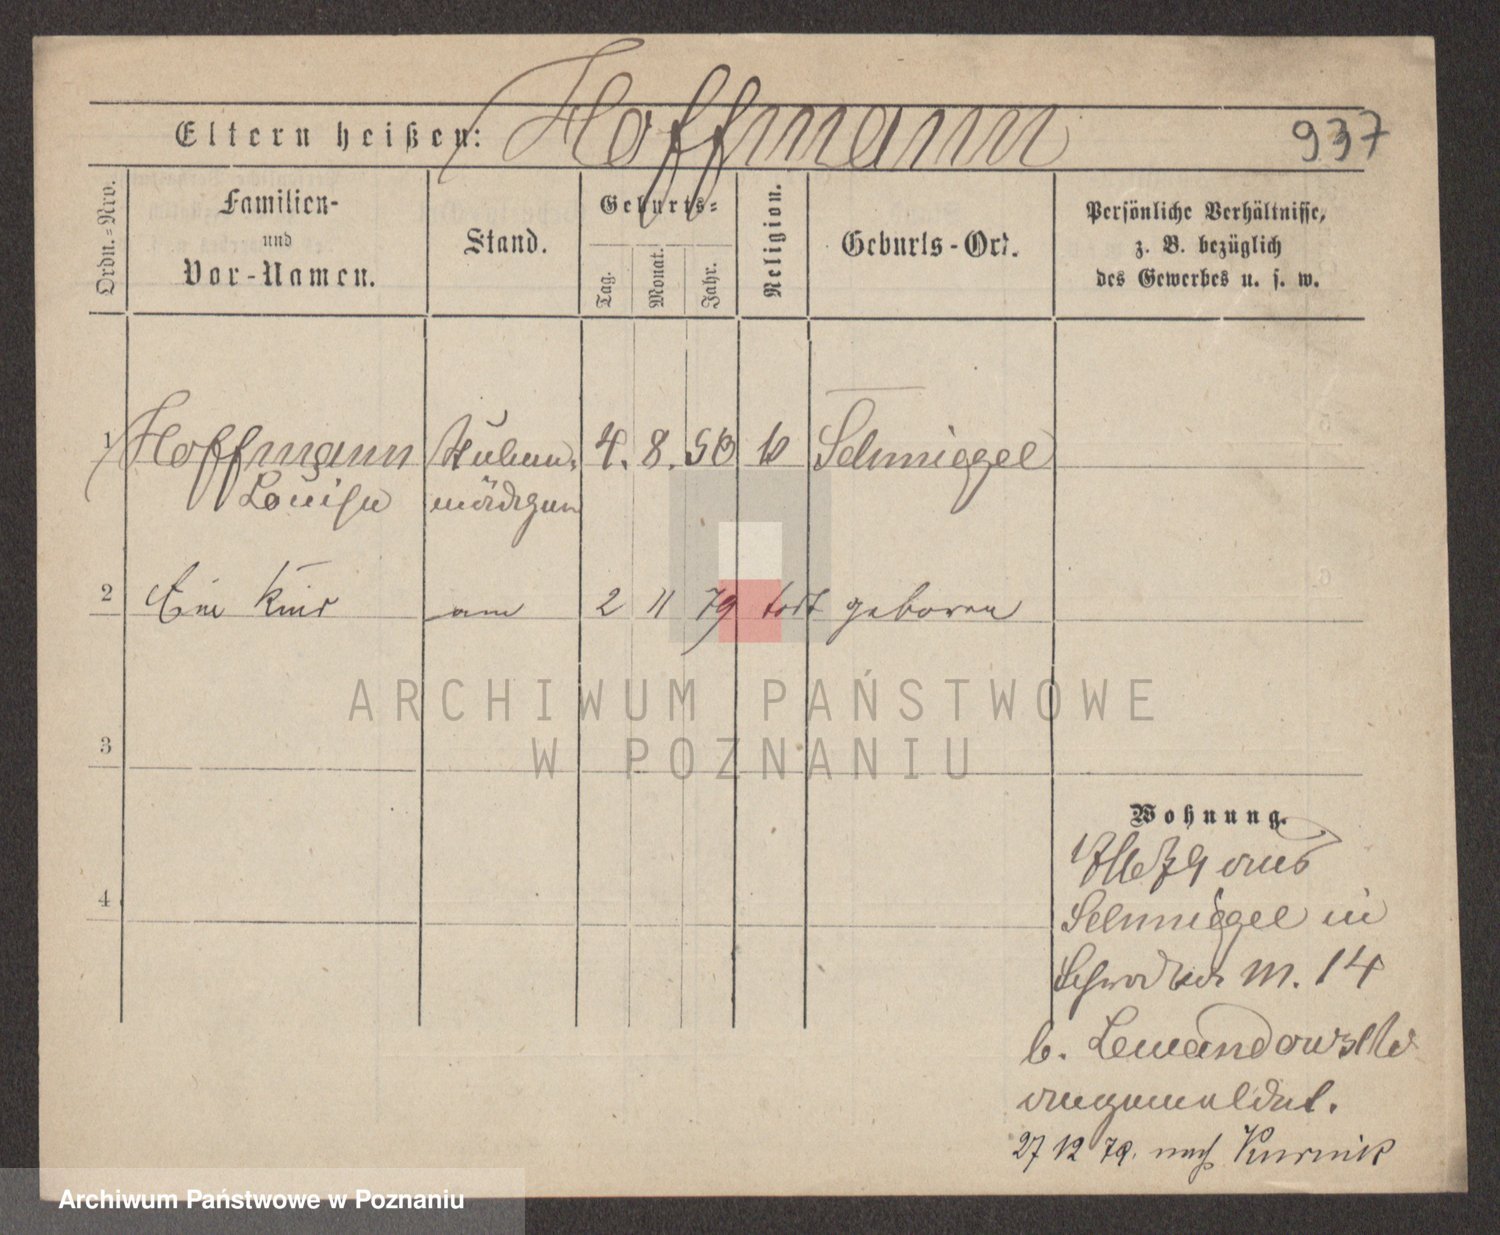 Eltern heißen: Hoffmann 937
Ordn.=Nro.
Familien-
und
Vor-Namen.
Stand.
Geburts=
Tag.
Monat.
Jahr.
Religion.
Geburts-Ort.
Persönliche Verhältnisse,
z. B. bezüglich
des Gewerbes u. s. w.
1 Hoffmann 4. 8. Schmiegel
Louise mädchen
2 Ein Kind am 2 11 79 todt geboren
3
4
Wohnung.
79 aus
Schmiegel in
14
b. Lewandowski
angemeldet.
27 12 79. nach Kurnik
ARCHIWUM PAŃSTWOWE
W POZNANIU
Archiwum Państwowe w Poznaniu